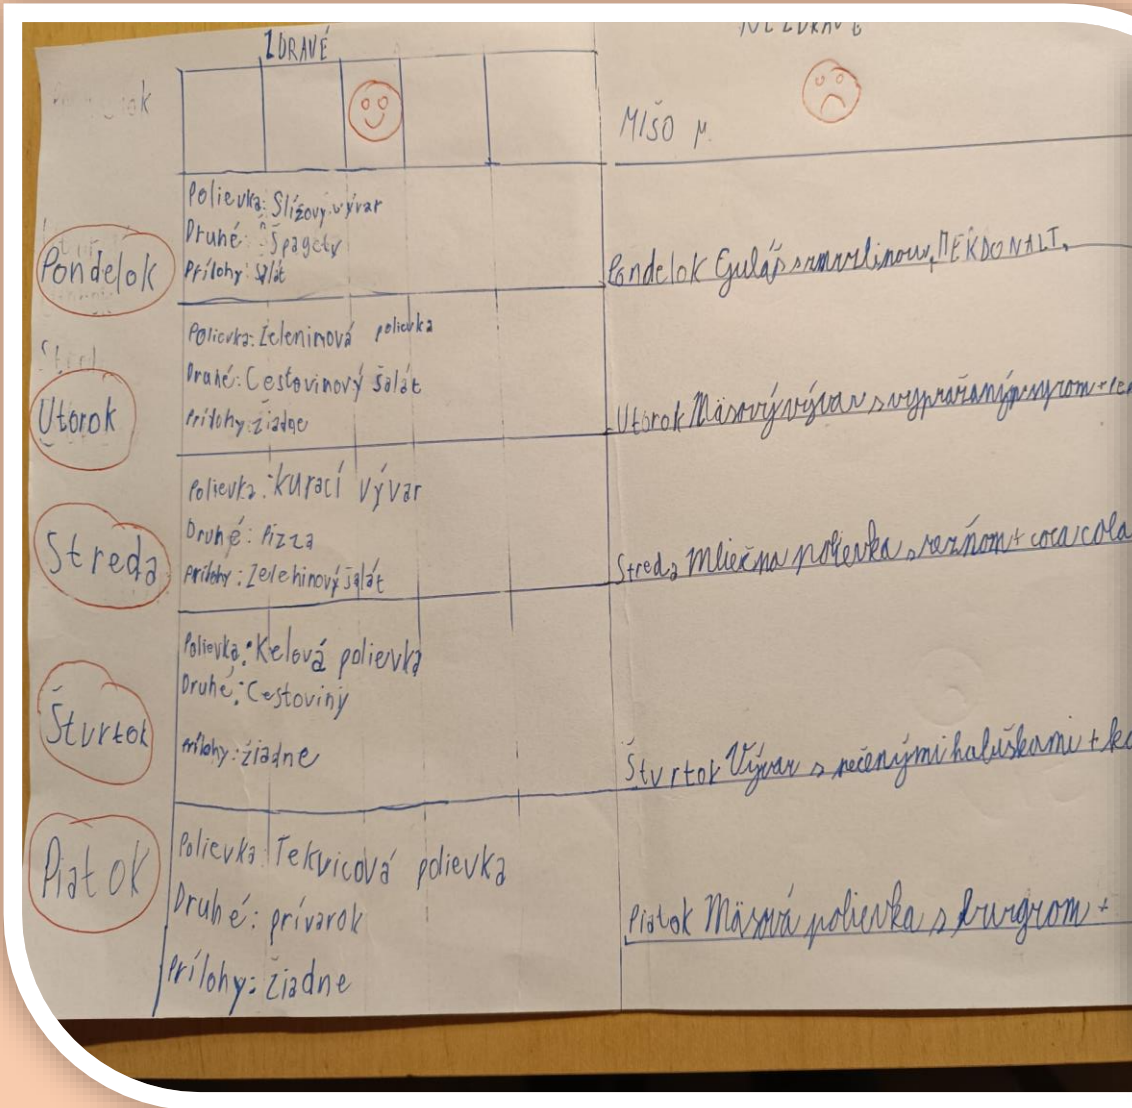 ZDRAVÉ
NEZDRAVÉ
MIŠO M.
Pondelok
Polievka: Slížový vývar
Druhé: Špagety
Prílohy: šalát
Pondelok Guláš s zmrzlinou, MEKDONALT,
Utorok
Polievka: Zeleninová polievka
Druhé: Cestovinový šalát
Prílohy: žiadne
Utorok Mäsový vývar s vyprážaným syrom +
Streda
Polievka: Kurací vývar
Druhé: Pizza
Prílohy: Zeleninový šalát
Streda Mliečna polievka s rezňom + coca cola
Štvrtok
Polievka: Kelová polievka
Druhé: Cestoviny
Prílohy: žiadne
Štvrtok Vývar s pečenými haluškami +
Piatok
Polievka: Tekvicová polievka
Druhé: prívarok
Prílohy: žiadne
Piatok Mäsová polievka s burgrom +